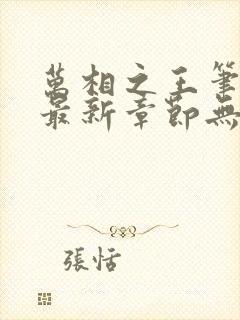 萬相之王筆
最新章節無
張恬